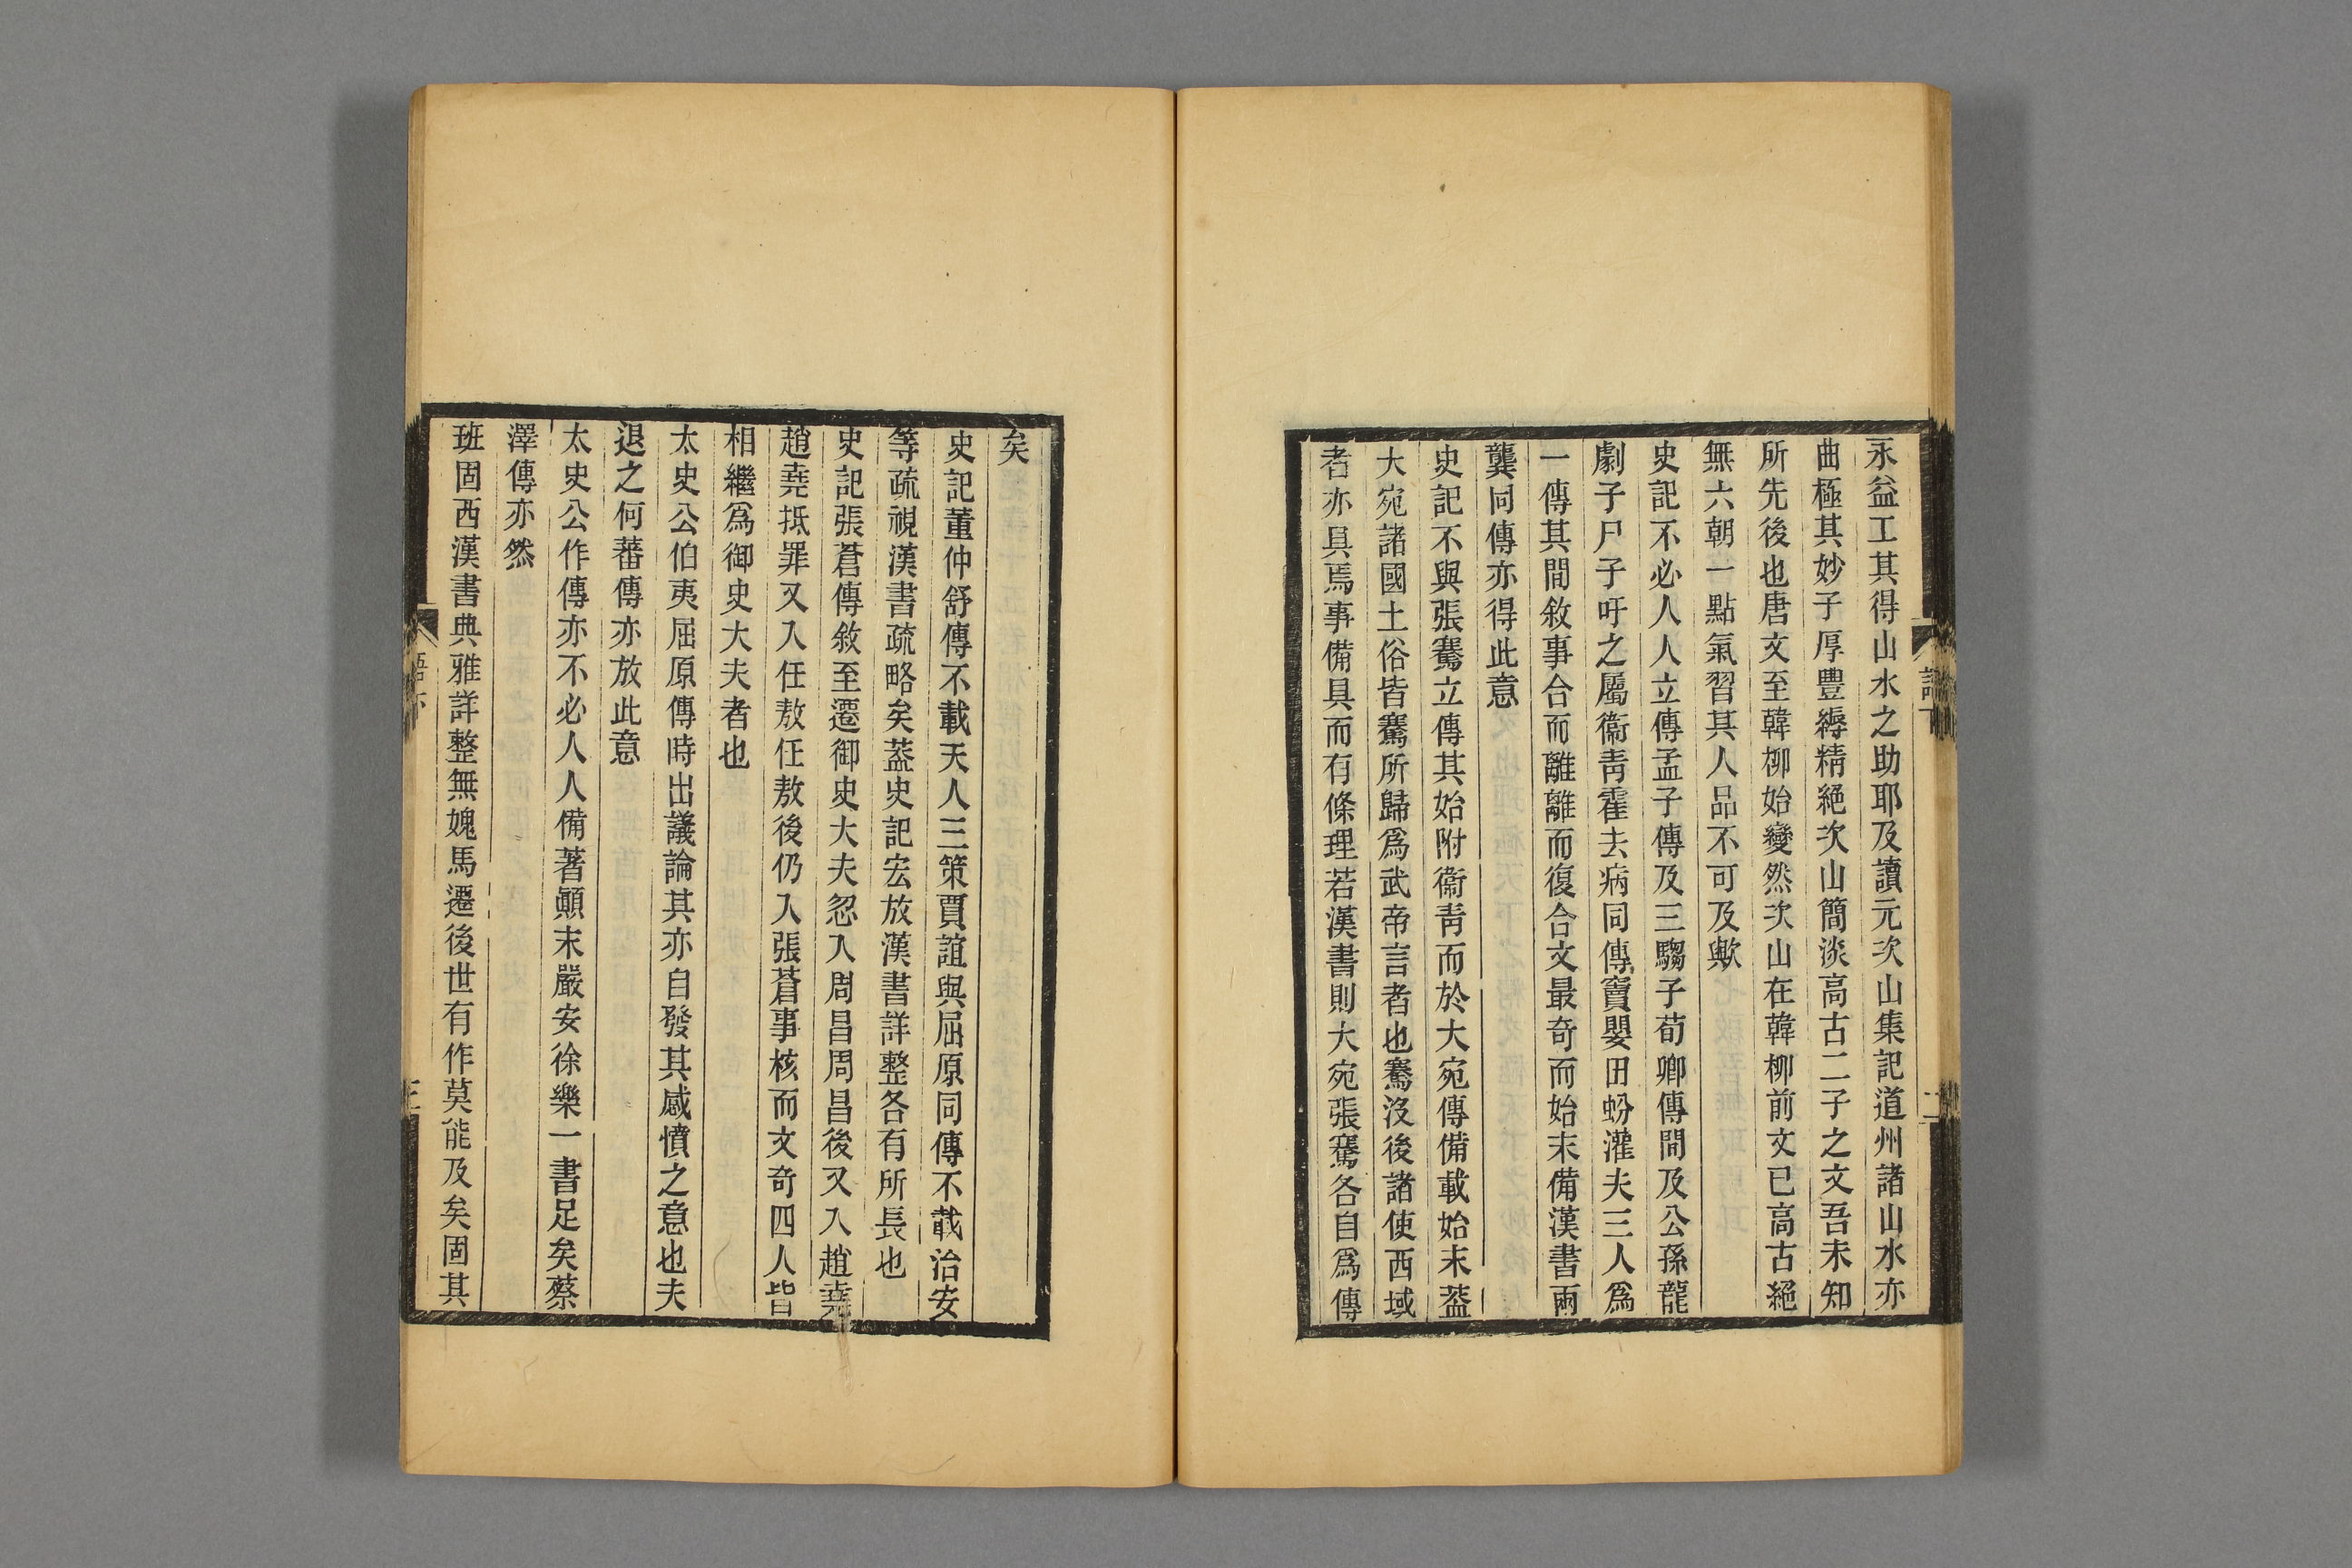 永益工其得山水之助耶及讀元次山集記道州諸山水亦
曲極其妙子厚豐縟精絕次山簡淡高古二子之文吾未知
所先後也唐文至韓柳始變然次山在韓柳前文已高古絕
無六朝一點氣習其人品不可及歟
史記不必人人立傳孟子傳及三騶子荀卿傳間及公孫龍
劇子尸子吁之屬衞靑霍去病同傳竇嬰田蚡灌夫三人爲
一傳其間敘事合而離離而復合文最奇而始末備漢書兩
龔同傳亦得此意
史記不與張騫立傳其始附衞靑而於大宛傳備載始末葢
大宛諸國土俗皆騫所歸爲武帝言者也騫沒後諸使西域
者亦具焉事備具而有條理若漢書則大宛張騫各自爲傳
語下
二
矣
史記董仲舒傳不載天人三策賈誼與屈原同傳不載治安
等疏視漢書疏略矣葢史記宏放漢書詳整各有所長也
史記張蒼傳敘至遷御史大夫忽入周昌周昌後又入趙堯
趙堯抵罪又入任敖任敖後仍入張蒼事核而文奇四人皆
相繼爲御史大夫者也
太史公伯夷屈原傳時出議論其亦自發其感憤之意也夫
退之何蕃傳亦放此意
太史公作傳亦不必人人備著顚末嚴安徐樂一書足矣蔡
澤傳亦然
班固西漢書典雅詳整無媿馬遷後世有作莫能及矣固其
語下
三